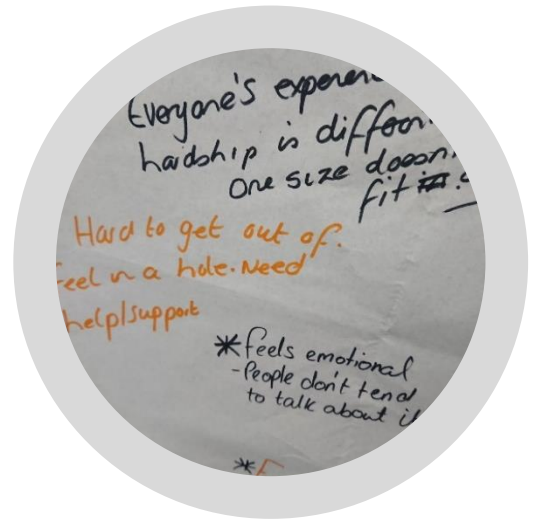 Everyone's experien
hardship is differen
One size doesn
fit
Hard to get out of.
feel in a hole. Need
help/support
*feels emotional
-People don't tend
to talk about it
*